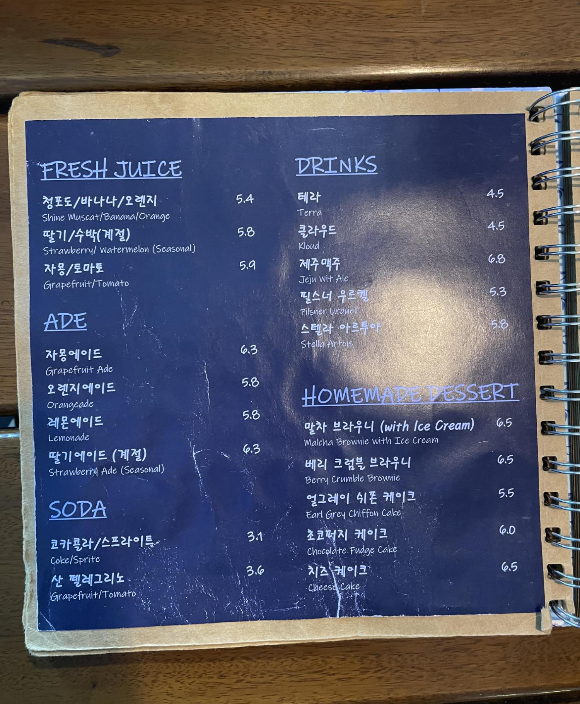 FRESH JUICE
청포도/바나나/오렌지 5.4
Shine Muscat/Banana/Orange
딸기/수박(계절) 5.8
Strawberry/ Watermelon (Seasonal)
자몽/토마토 5.9
Grapefruit/Tomato
ADE
자몽에이드 6.3
Grapefruit Ade
오렌지에이드 5.8
Orangeade
레몬에이드 5.8
Lemonade
딸기에이드 (계절) 6.3
Strawberry Ade (Seasonal)
SODA
코카콜라/스프라이트 3.1
Coke/Sprite
산 펠레그리노 3.6
Grapefruit/Tomato
DRINKS
테라 4.5
Terra
클라우드 4.5
Kloud
제주맥주 6.8
Jeju Wit Ale
필스너 우르켈 5.3
Pilsner Urquell
스텔라 아르투아 5.8
Stella Artois
HOMEMADE DESSERT
말차 브라우니 (with Ice Cream) 6.5
Matcha Brownie with Ice Cream
베리 크럼블 브라우니 6.5
Berry Crumble Brownie
얼그레이 쉬폰 케이크 5.5
Earl Grey Chiffon Cake
초코퍼지 케이크 6.0
Chocolate Fudge Cake
치즈 케이크 6.5
Cheese Cake